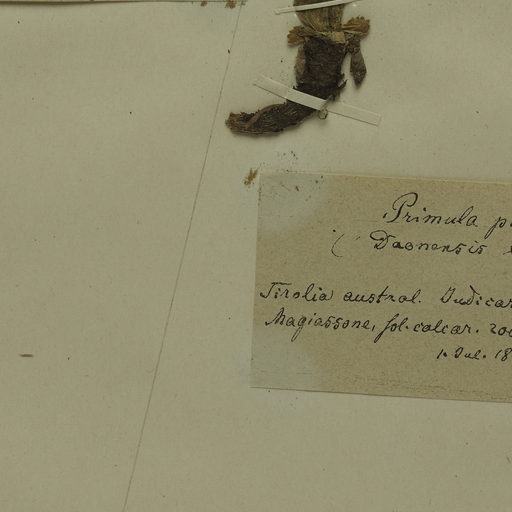 Primula p
( Daonensis
Tirolia austral. Judicar
Magiassone, sol. calcar. 200
1. Jul. 18